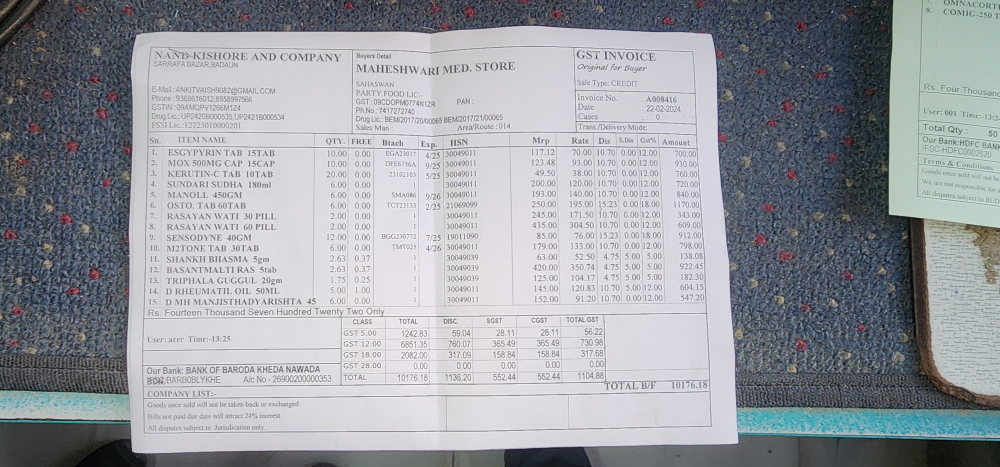 NAND-KISHORE AND COMPANY
SARRAFA BAZAR,BADAUN
E-Mail: ANKITVAISH9082@GMAIL.COM
Phone:9368616012,8958997566
GSTIN :09AMQPV1266M1Z4
Drug Lic.: UP2420B000535,UP2421B000534
FSSI Lic.:12723010000201
Buyers Detail
MAHESHWARI MED. STORE
SAHASWAN
PARTY FOOD LIC:-
GST :09CDOPM0774N1ZR PAN :
Ph.No :7417272740
Drug Lic.: BEM/2017/20/00065 BEM/2017/21/00065
Sales Man : Area/Route :014
GST INVOICE
Original for Buyer
Sale Type: CREDIT
Invoice No. : A008416
Date : 22-02-2024
Cases : 0
Trans./Delivery Mode:
Sn. ITEM NAME QTY. FREE Btach Exp. HSN Mrp Rate Dis S.Dis Gst% Amount
1. ESGYPYRIN TAB 15TAB 10.00 0.00 EGA23017 4/25 30049011 117.12 70.00 10.70 0.00 12.00 700.00
2. MOX 500MG CAP 15CAP 10.00 0.00 DEE6756A 9/25 30049011 123.48 93.00 10.70 0.00 12.00 930.00
3. KERUTIN-C TAB 10TAB 20.00 0.00 23102103 5/25 30049011 49.50 38.00 10.70 0.00 12.00 760.00
4. SUNDARI SUDHA 180ml 6.00 0.00 30049011 200.00 120.00 10.70 0.00 12.00 720.00
5. MANOLL 450GM 6.00 0.00 SMA086 9/26 30049011 193.00 140.00 10.70 0.00 12.00 840.00
6. OSTO. TAB 60TAB 6.00 0.00 TCT23133 2/25 21069099 250.00 195.00 15.23 0.00 18.00 1170.00
7. RASAYAN WATI 30 PILL 2.00 0.00 30049011 245.00 171.50 10.70 0.00 12.00 343.00
8. RASAYAN WATI 60 PILL 2.00 0.00 30049011 435.00 304.50 10.70 0.00 12.00 609.00
9. SENSODYNE 40GM 12.00 0.00 BGG230772 7/25 19011090 85.00 76.00 15.23 0.00 18.00 912.00
10. M2TONE TAB 30TAB 6.00 0.00 TMT025 4/26 30049011 179.00 133.00 10.70 0.00 12.00 798.00
11. SHANKH BHASMA 5gm 2.63 0.37 30049039 63.00 52.50 4.75 5.00 5.00 138.08
12. BASANTMALTI RAS 5tab 2.63 0.37 30049039 420.00 350.74 4.75 5.00 5.00 922.45
13. TRIPHALA GUGGUL 20gm 1.75 0.25 30049039 125.00 104.17 4.75 5.00 5.00 182.30
14. D RHEUMATIL OIL 50ML 5.00 1.00 30049011 145.00 120.83 10.70 5.00 12.00 604.15
15. D MH MANJISTHADYARISHTA 45 6.00 0.00 30049011 152.00 91.20 10.70 0.00 12.00 547.20
Rs. Fourteen Thousand Seven Hundred Twenty Two Only
User: acer Time:-13:25
CLASS TOTAL DISC. SGST CGST TOTAL GST
GST 5.00 1242.83 59.04 28.11 28.11 56.22
GST 12.00 6851.35 760.07 365.49 365.49 730.98
GST 18.00 2082.00 317.09 158.84 158.84 317.68
GST 28.00 0.00 0.00 0.00 0.00 0.00
TOTAL 10176.18 1136.20 552.44 552.44 1104.88
Our Bank: BANK OF BARODA KHEDA NAWADA
BARB0BLYKHE A/c No.- 26900200000353
TOTAL B/F 10176.18
COMPANY LIST:-
Goods once sold will not be taken back or exchanged.
Bills not paid due date will attract 24% interest.
All disputes subject to Jurisdication only.
OMNACORT
8. COMIG-250 T
Rs. Four Thousand
User: 001 Time:-13:2
Total Qty : 50
Our Bank:HDFC BANK
IFSC-HDFC0002620
Terms & Conditions
Goods once sold will not be
We are not responsible for
All disputes subject to